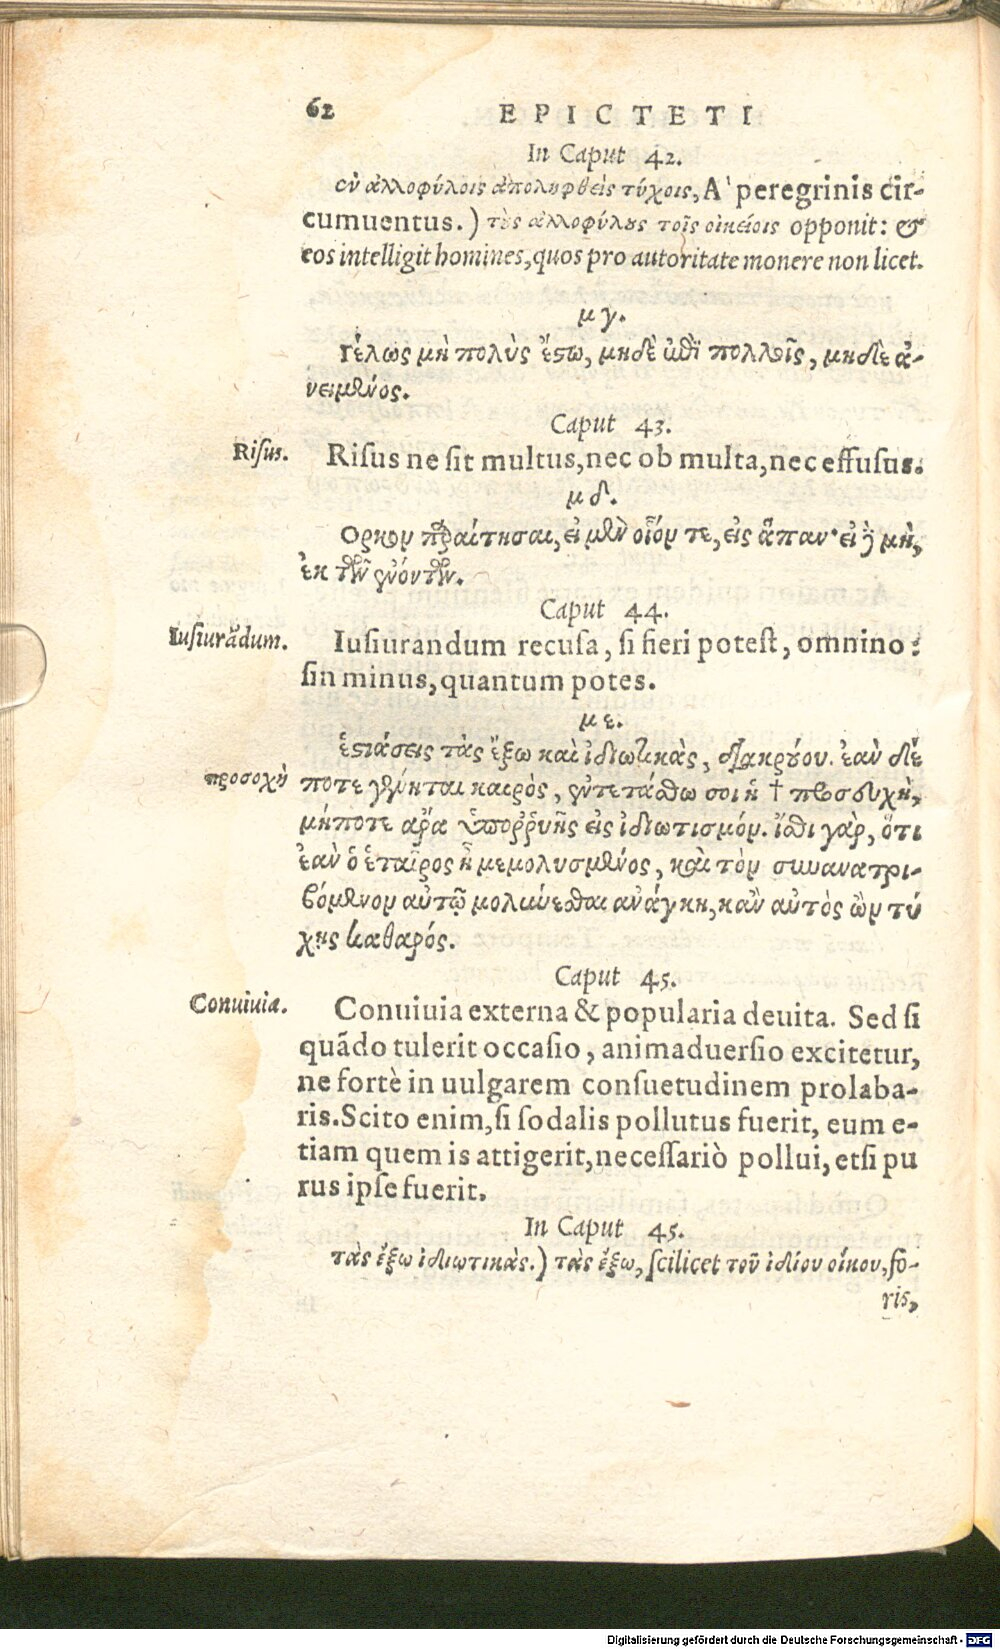 62 EPICTETI
In Caput 42.
ἐν ἀλλοφύλοις ἀποληφθεὶς τύχοις, A' peregrinis cir-
cumuentus.) τοὺς ἀλλοφύλους τοῖς οἰκείοις opponit: &
eos intelligit homines, quos pro autoritate monere non licet.
μγ.
Γέλως μὴ πολὺς ἔστω, μηδὲ ἐπὶ πολλοῖς, μηδὲ ἀ-
νειμένος.
Caput 43.
Risus.
Risus ne sit multus, nec ob multa, nec effusus.
μδ.
Ορκον παραίτησαι, εἰ μὲν οἷόν τε, εἰς ἅπαν· εἰ δὲ μὴ,
ἐκ τῶν ἐνόντων.
Caput 44.
Iusiurãdum.
Iusiurandum recusa, si fieri potest, omnino:
sin minus, quantum potes.
με.
ἑστιάσεις τὰς ἔξω καὶ ἰδιωτικὰς, διακρούου. ἐὰν δέ
προσοχὴ
ποτε γίνηται καιρὸς, ἐντετάσθω σοι ἡ † προσευχὴ,
μήποτε ἄρα ὑποῤῥυῇς εἰς ἰδιωτισμόν. ἴσθι γὰρ, ὅτι
ἐὰν ὁ ἑταῖρος ᾖ μεμολυσμένος, καὶ τὸν συνανατρι-
βόμενον αὐτῷ μολύνεσθαι ἀνάγκη, κἂν αὐτὸς ὢν τύ
χῃς καθαρός.
Caput 45.
Conuiuia.
Conuiuia externa & popularia deuita. Sed si
quãdo tulerit occasio, animaduersio excitetur,
ne fortè in uulgarem consuetudinem prolaba-
ris. Scito enim, si sodalis pollutus fuerit, eum e-
tiam quem is attigerit, necessariò pollui, etsi pu
rus ipse fuerit.
In Caput 45.
τὰς ἔξω ἰδιωτικάς.) τὰς ἔξω, scilicet τοῦ ἰδίου οἴκου, fo-
ris,
Digitalisierung gefördert durch die Deutsche Forschungsgemeinschaft - DFG